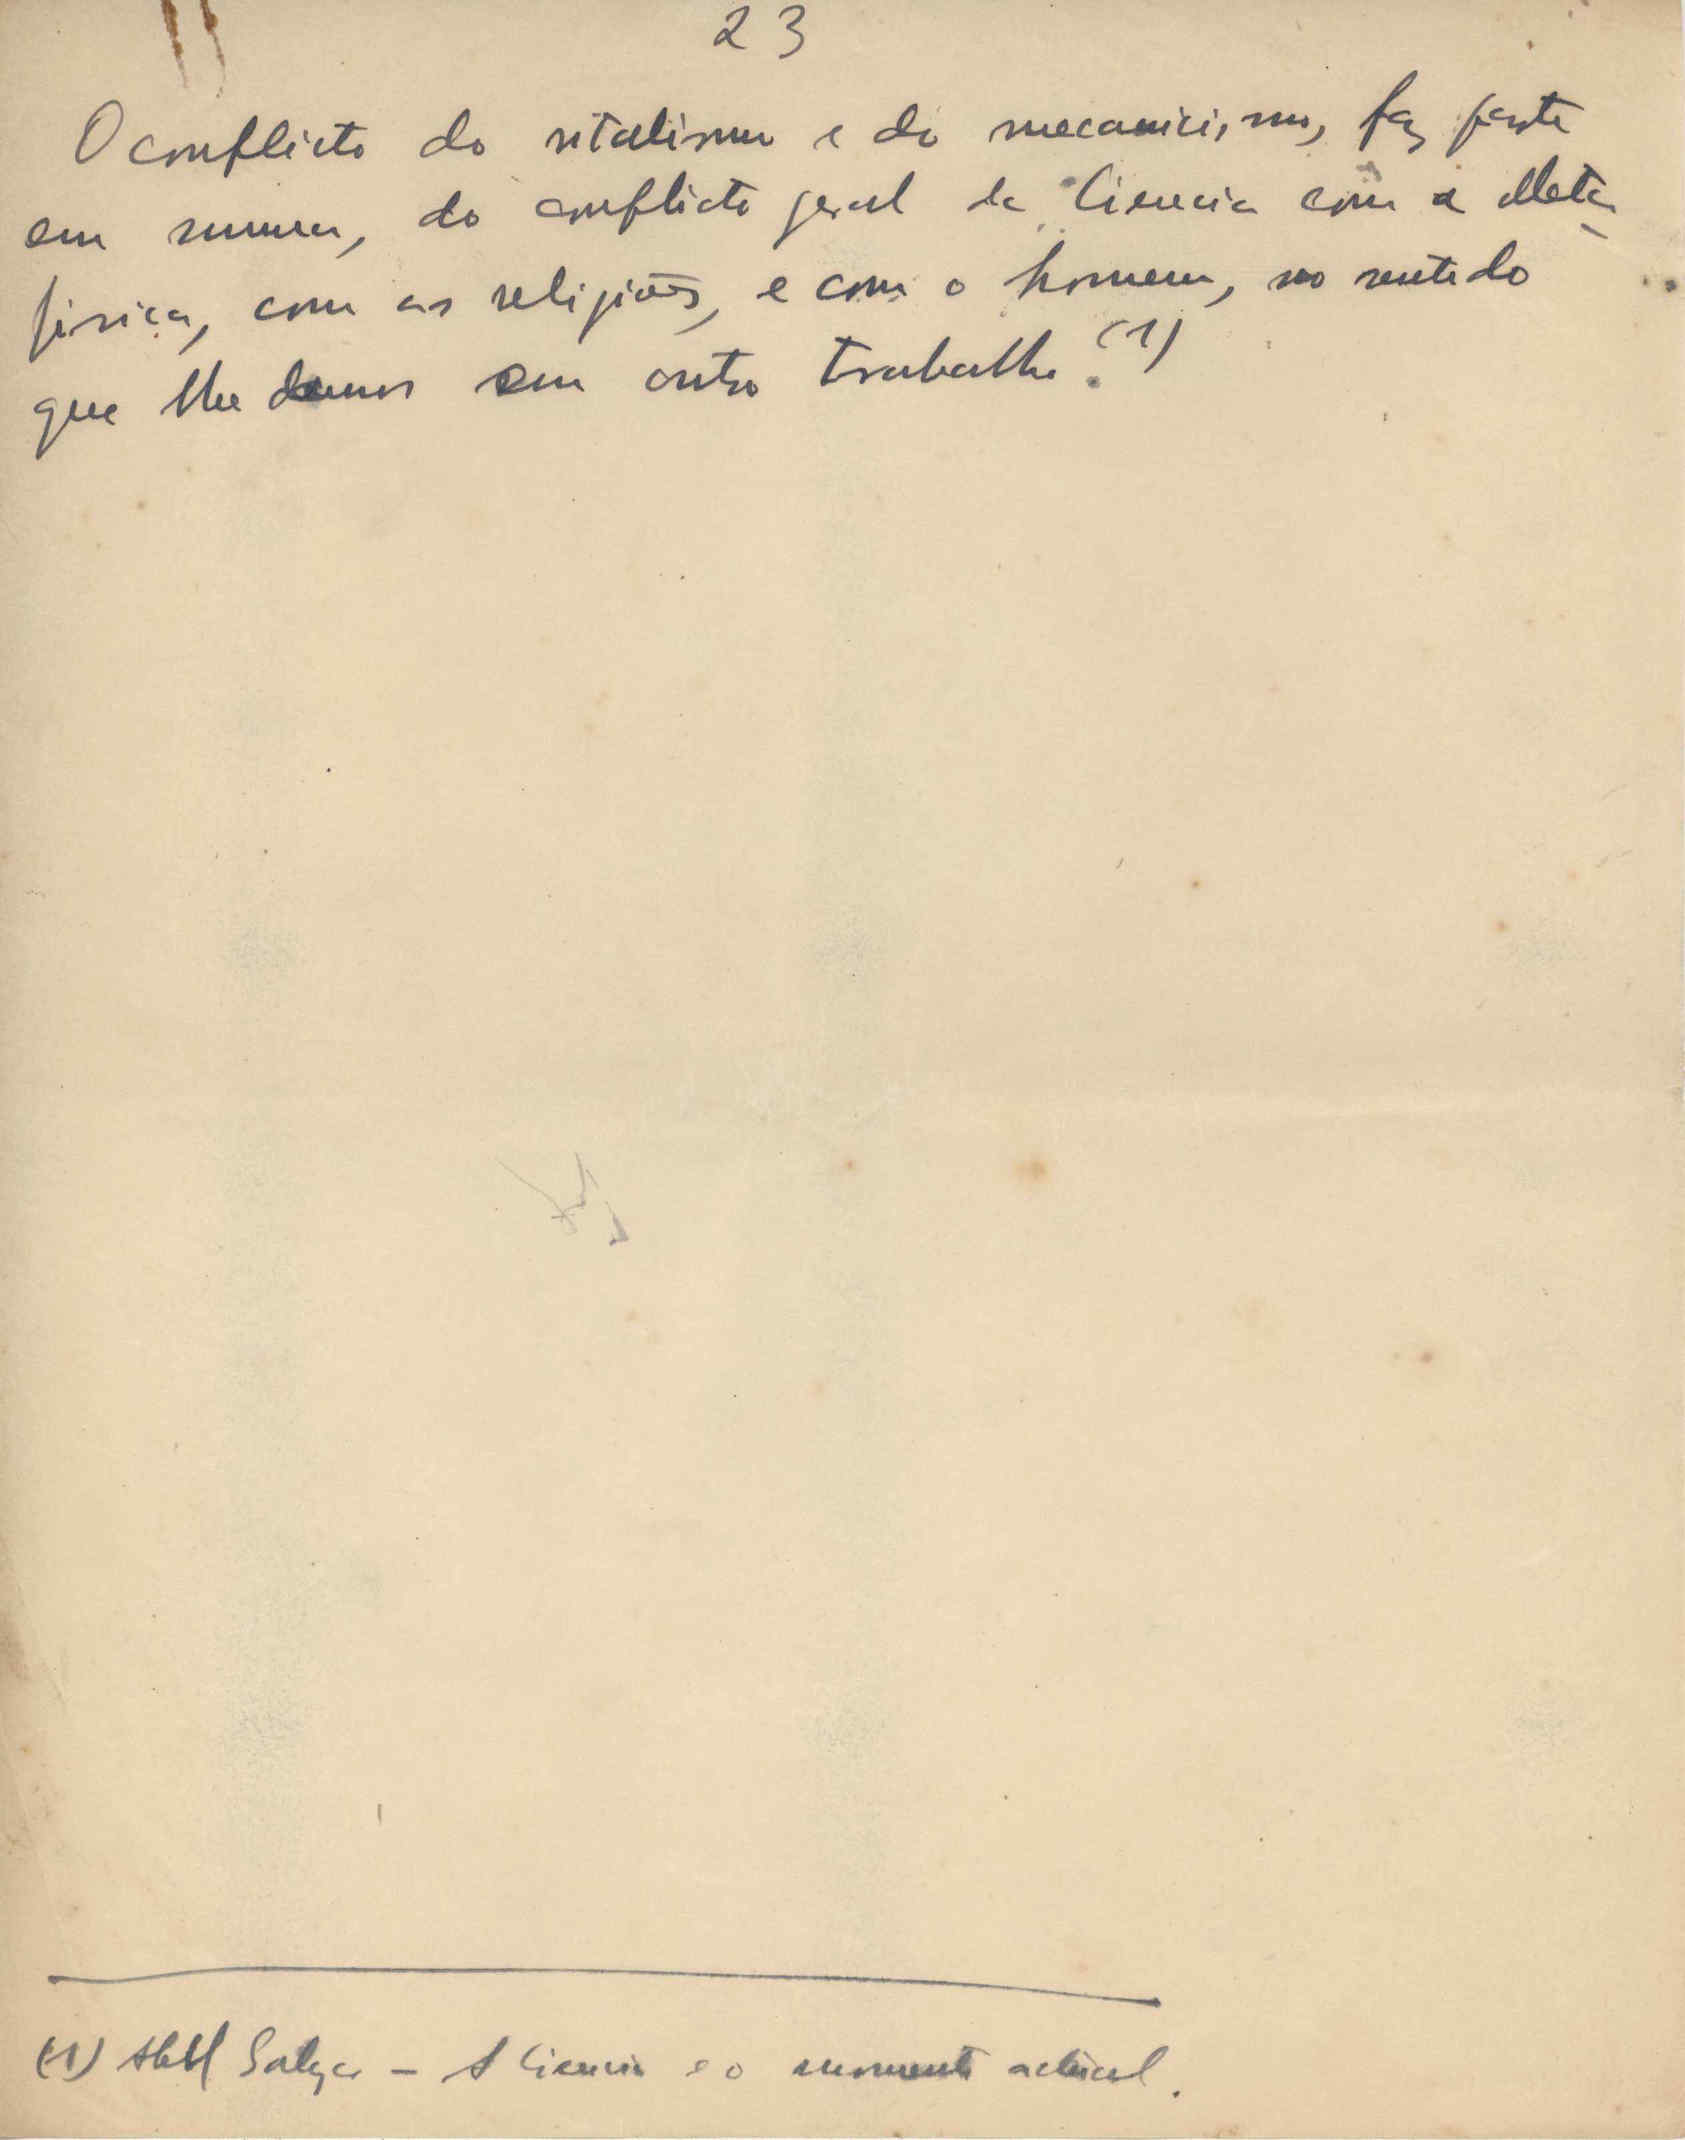 23
O conflicto do vitalismo e do mecanicismo, faz parte
em summa, do conflicto geral da Ciencia com a Meta-
fisica, com as religiões, e com o homem, no sentido
que lhe damos em outro trabalho. (1)
(1) Abel Salazar – A Ciencia e o momento actual.